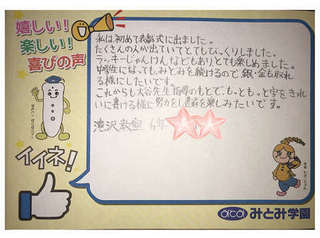 嬉しい!
楽しい!
喜びの声
イイネ!
私は初めて表彰式に出ました。
たくさんの人が出ていてとてもびっくりしました。
ラッキーじゃんけんなどもありとても楽しめました。
中学生になってもみとみを続けるので銀・金も取れ
る様にしたいです。
これからも大谷先生指導のもとで、もっともっと字をきれ
いに書ける様に努力をし書道を楽しみたいです。
滝沢 6年
みとみ学園